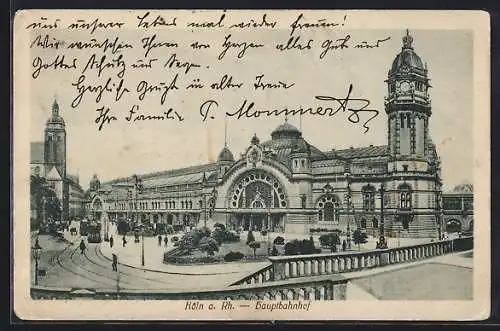 uns unserer Lebes mal wieder freuen!
Wir wünschen Ihnen von Herzen alles Gute und
Gottes Schutz und Segen.
Herzliche Grüße in alter Treue
Ihre Familie P. Mommertz
Köln a. Rh. — Hauptbahnhof